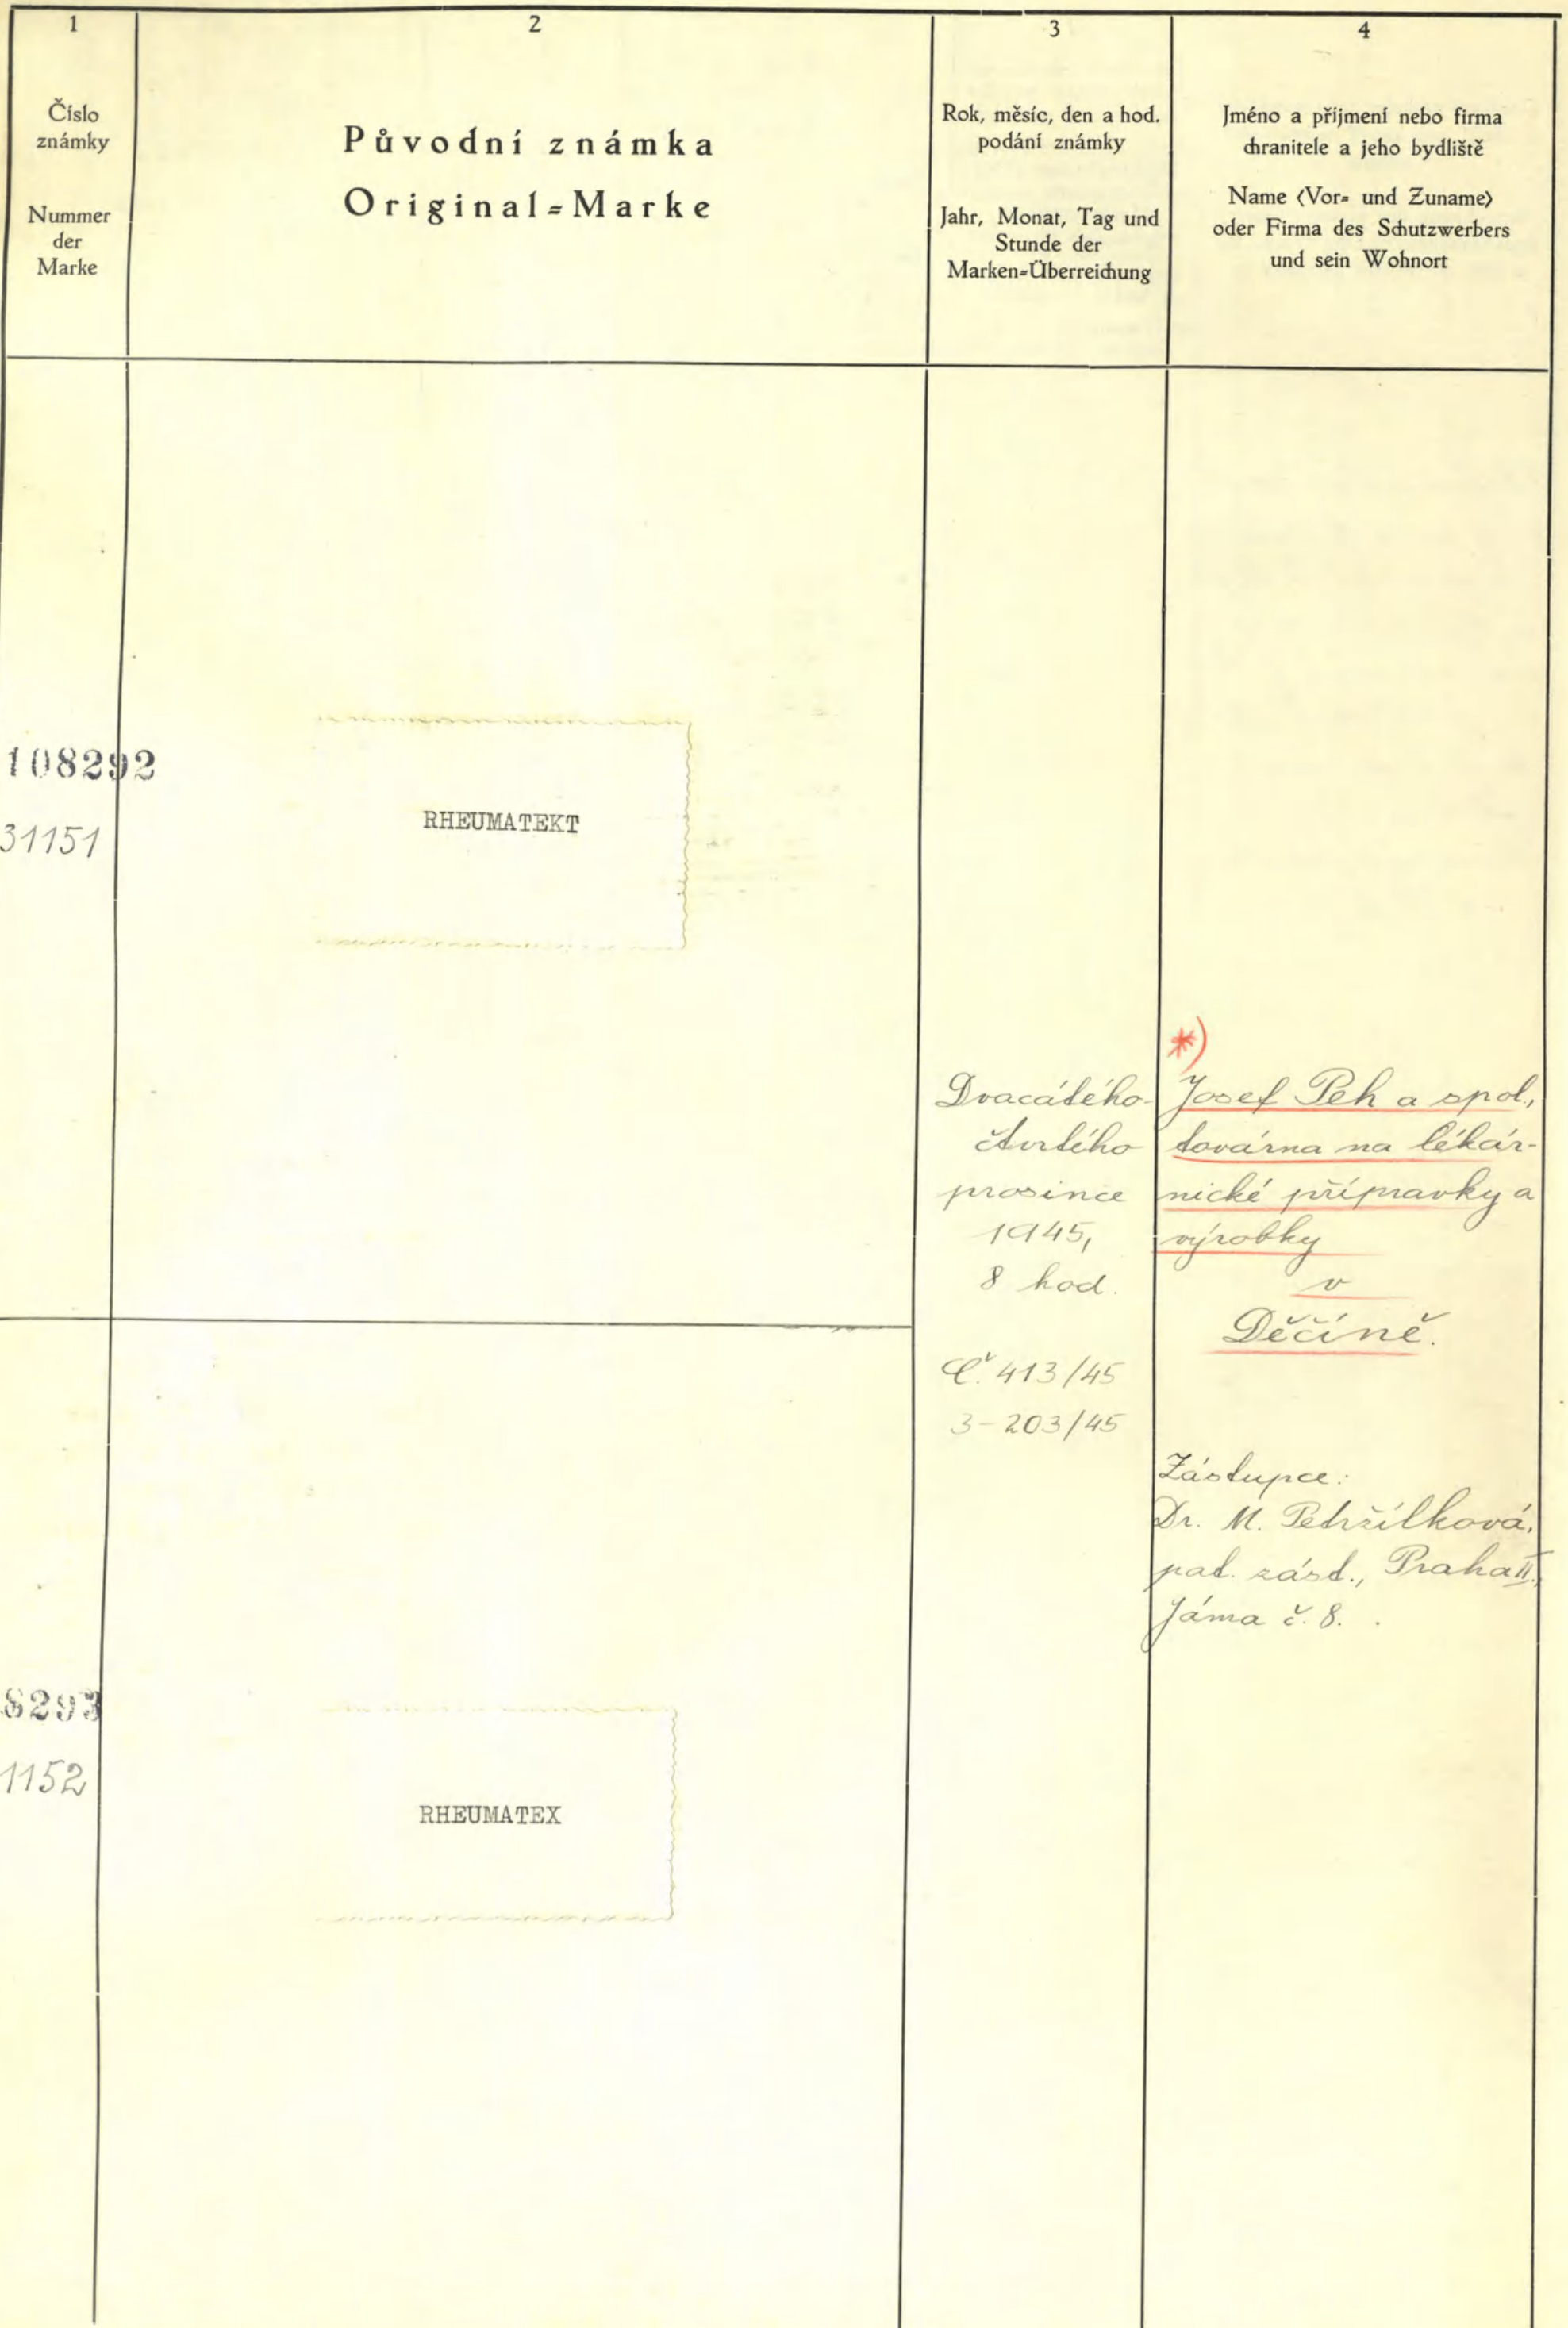 1
2
3
4
Číslo
známky
Nummer
der
Marke
Původní známka
Original=Marke
Rok, měsíc, den a hod.
podání známky
Jahr, Monat, Tag und
Stunde der
Marken=Überreichung
Jméno a příjmení nebo firma
chranitele a jeho bydliště
Name (Vor= und Zuname)
oder Firma des Schutzwerbers
und sein Wohnort
108292
31151
RHEUMATEKT
Dvacátého
čtvrtého
prosince
1945,
8 hod.
Č. 413/45
3-203/45
*)
Josef Peh a spol.,
továrna na lékár-
nické přípravky a
výrobky
v
Děčíně.
Zástupce:
Dr. M. Petržílková,
pat. zást., Praha II,
Jáma č. 8.
8293
1152
RHEUMATEX